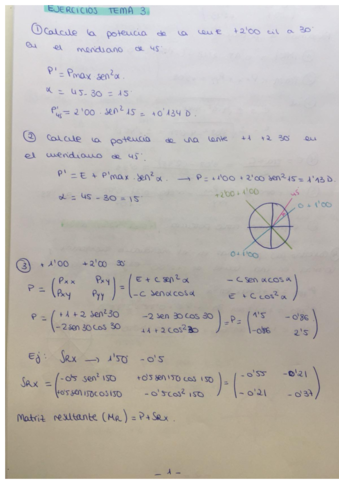 EJERCICIOS TEMA 3.
① Calcule la potencia de la lente +2'00 cil a 30
en el meridiano de 45.
P' = Pmax sen²α
α = 45 - 30 = 15
P'45 = 2'00 sen²15 = +0'134 D.
② Calcule la potencia de una lente +1 +2 30 en
el meridiano de 45.
P' = E + P'max sen²α → P = +1'00 + 2'00 sen²15 = 1'13 D
α = 45 - 30 = 15
+2'00 + 1'00
0 + 1'00
0 + 1'00
③ +1'00 +2'00 30
P = (Pxx Pxy) = (E + C sen²α - C senα cosα)
(Pxy Pyy) (-C senα cosα E + C cos²α)
P = (+1 + 2 sen²30 -2 sen30 cos30) = P = (1'5 -0'86)
(-2 sen30 cos30 +1 + 2 cos²30) (-0'86 2'5)
Ej: SRX → 1'50 -0'5
SRX = (-0'5 sen²150 +0'5 sen150 cos150) = (-0'55 -0'21)
(+0'5 sen150 cos150 -0'5 cos²150) (-0'21 -0'37)
Matriz resultante (MR) = P + SRX.
- 1 -